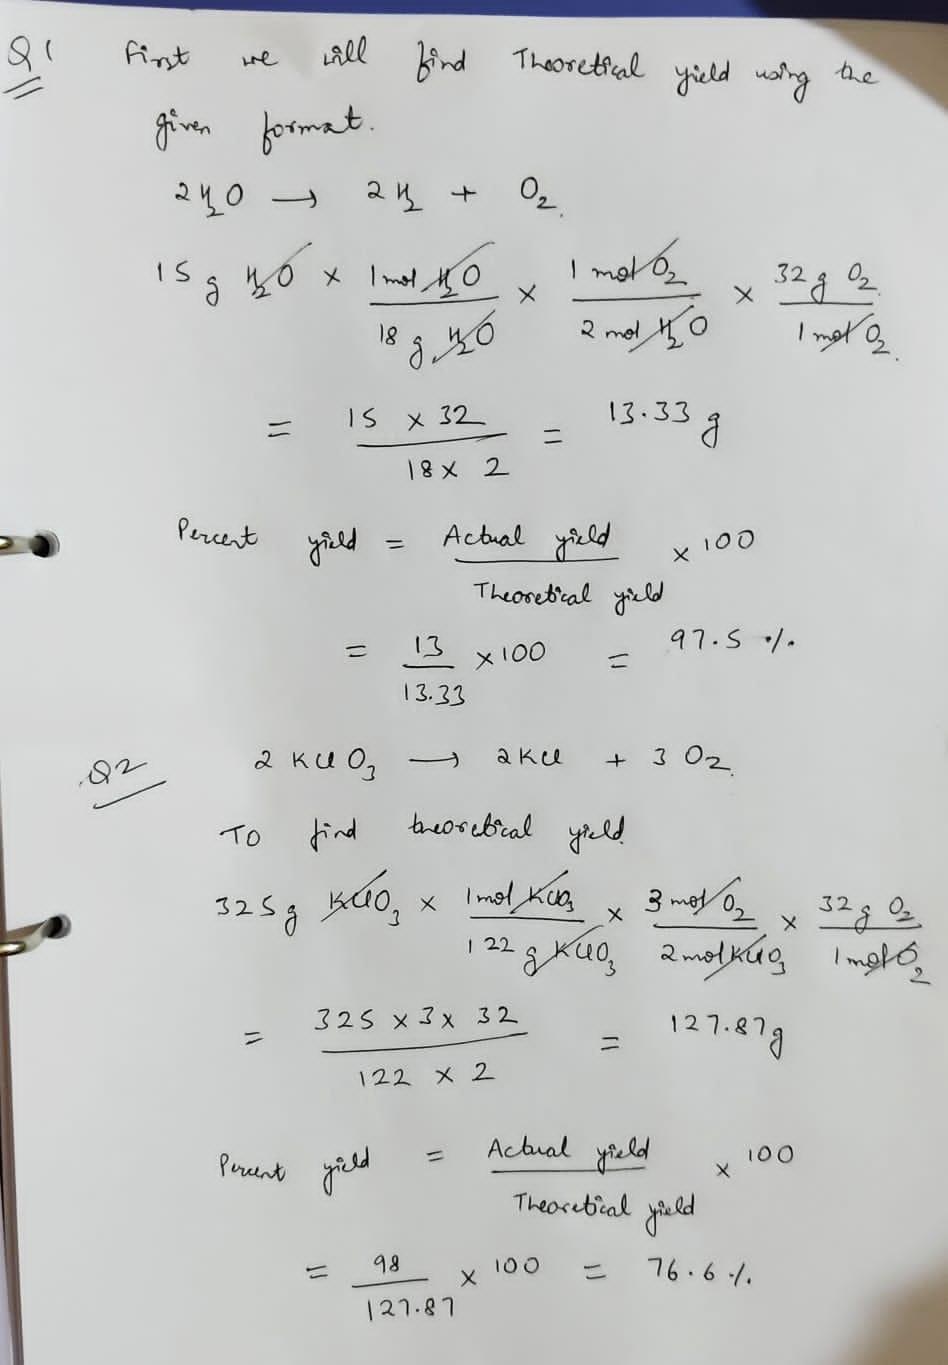 Q1 First we will find Theoretical yield using the
given format.
2H2O → 2H2 + O2.
15 g H2O × 1 mol H2O / 18 g H2O × 1 mol O2 / 2 mol H2O × 32 g O2 / 1 mol O2.
= 15 × 32 / 18 × 2 = 13.33 g
Percent yield = Actual yield / Theoretical yield × 100
= 13 / 13.33 × 100 = 97.5 %
Q2 2 KClO3 → 2KCl + 3 O2.
To find theoretical yield.
325 g KClO3 × 1 mol KClO3 / 122 g KClO3 × 3 mol O2 / 2 mol KClO3 × 32 g O2 / 1 mol O2
= 325 × 3 × 32 / 122 × 2 = 127.87 g
Percent yield = Actual yield / Theoretical yield × 100
= 98 / 127.87 × 100 = 76.6 %.